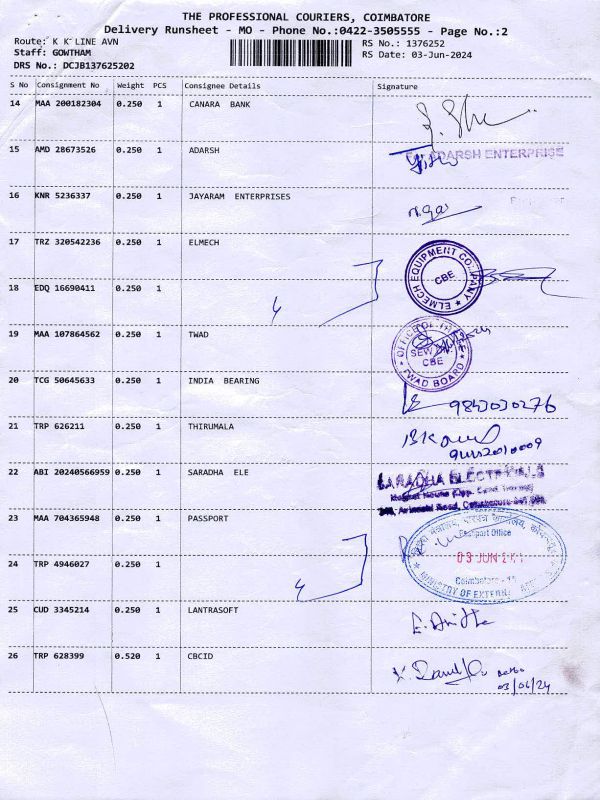 THE PROFESSIONAL COURIERS, COIMBATORE
Delivery Runsheet - MO - Phone No.:0422-3505555 - Page No.:2
Route: K K LINE AVN
RS No.: 1376252
Staff: GOWTHAM
RS Date: 03-Jun-2024
DRS No.: DCJB137625202
S No Consignment No Weight PCS Consignee Details Signature
14 MAA 200182304 0.250 1 CANARA BANK
15 AMD 28673526 0.250 1 ADARSH
ADARSH ENTERPRISE
16 KNR 5236337 0.250 1 JAYARAM ENTERPRISES
17 TRZ 320542236 0.250 1 ELMECH
ELMECH EQUIPMENT COMPANY
CBE
18 EDQ 16690411 0.250 1
19 MAA 107864562 0.250 1 TWAD
OFFICE OF THE
CBE
TWAD BOARD
20 TCG 50645633 0.250 1 INDIA BEARING
21 TRP 626211 0.250 1 THIRUMALA
22 ABI 20240566959 0.250 1 SARADHA ELE
SARADHA ELECTRICALS
23 MAA 704365948 0.250 1 PASSPORT
Passport Office
03 JUN
Coimbatore
MINISTRY OF EXTERNAL
24 TRP 4946027 0.250 1
25 CUD 3345214 0.250 1 LANTRASOFT
26 TRP 628399 0.520 1 CBCID
03/06/24